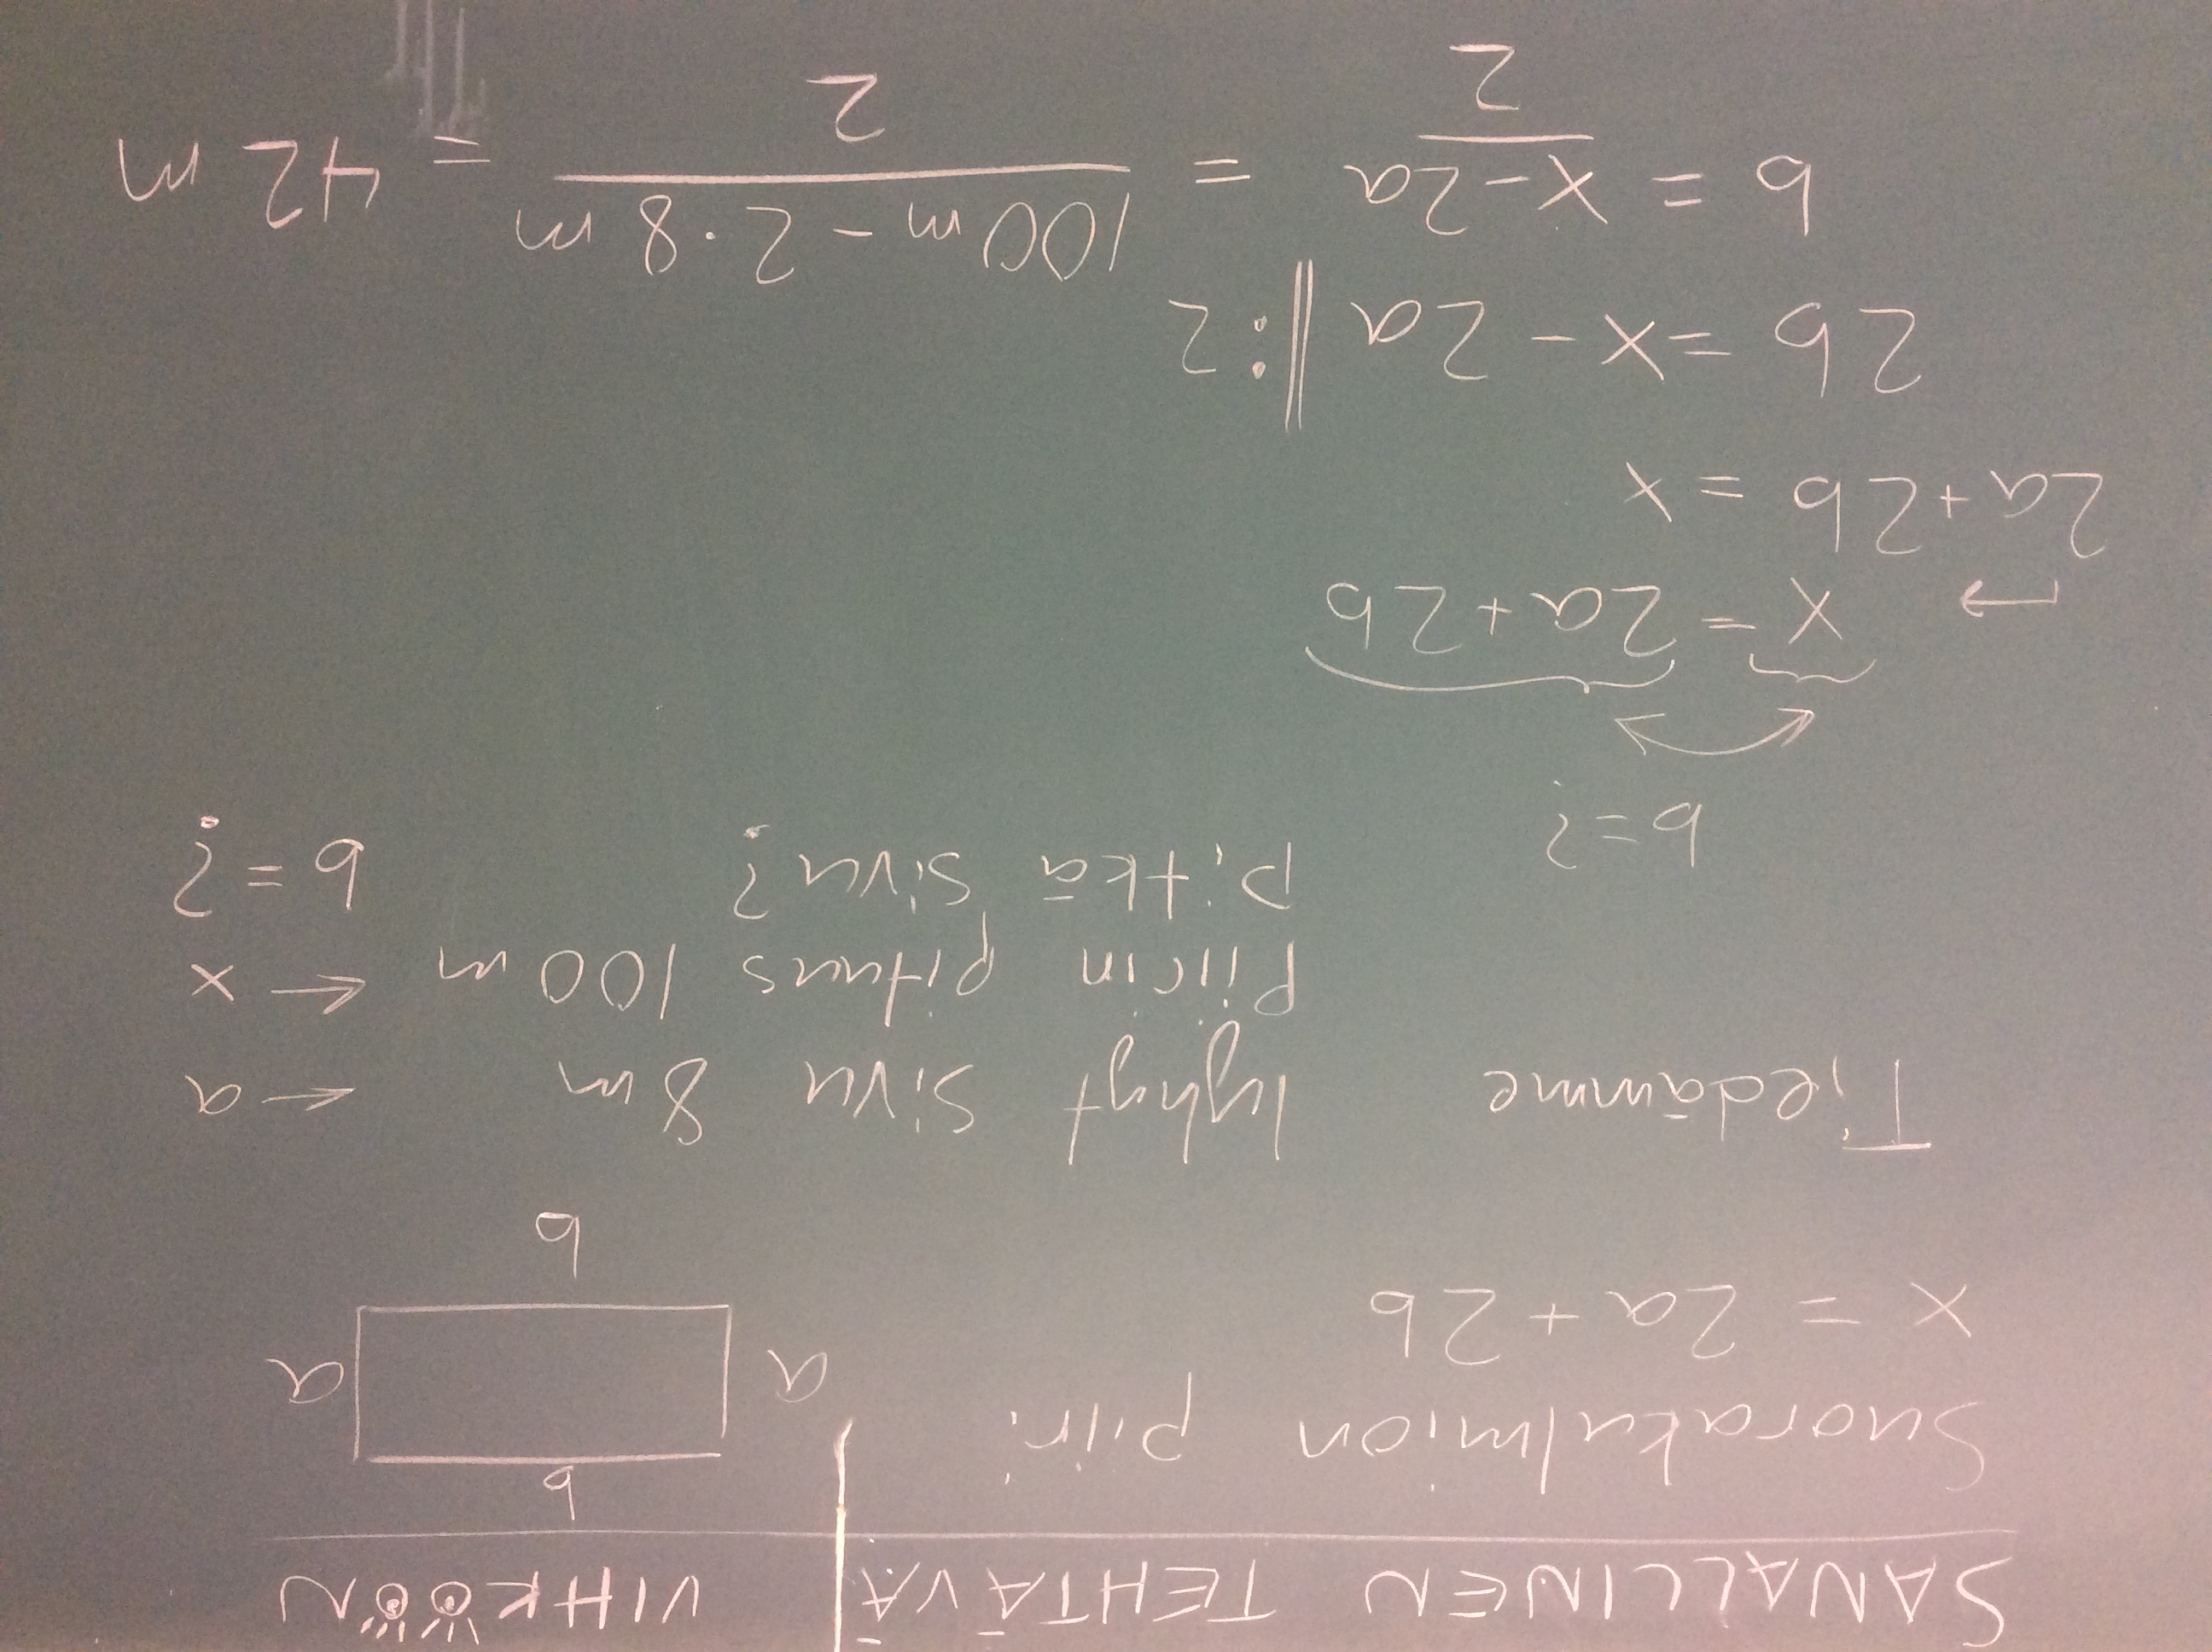 SANALLINEN TEHTÄVÄ | VIHKOON
Suorakulmion piiri
x = 2a + 2b
b
a a
b
Tiedämme lyhyt sivu 8 m ← a
Piirin pituus 100 m ← x
Pitkä sivu? b = ?
b = ?
x = 2a + 2b
↦ 2a + 2b = x
2b = x - 2a ||:2
b = \frac{x - 2a}{2} = \frac{100 m - 2 · 8 m}{2} = 42 m